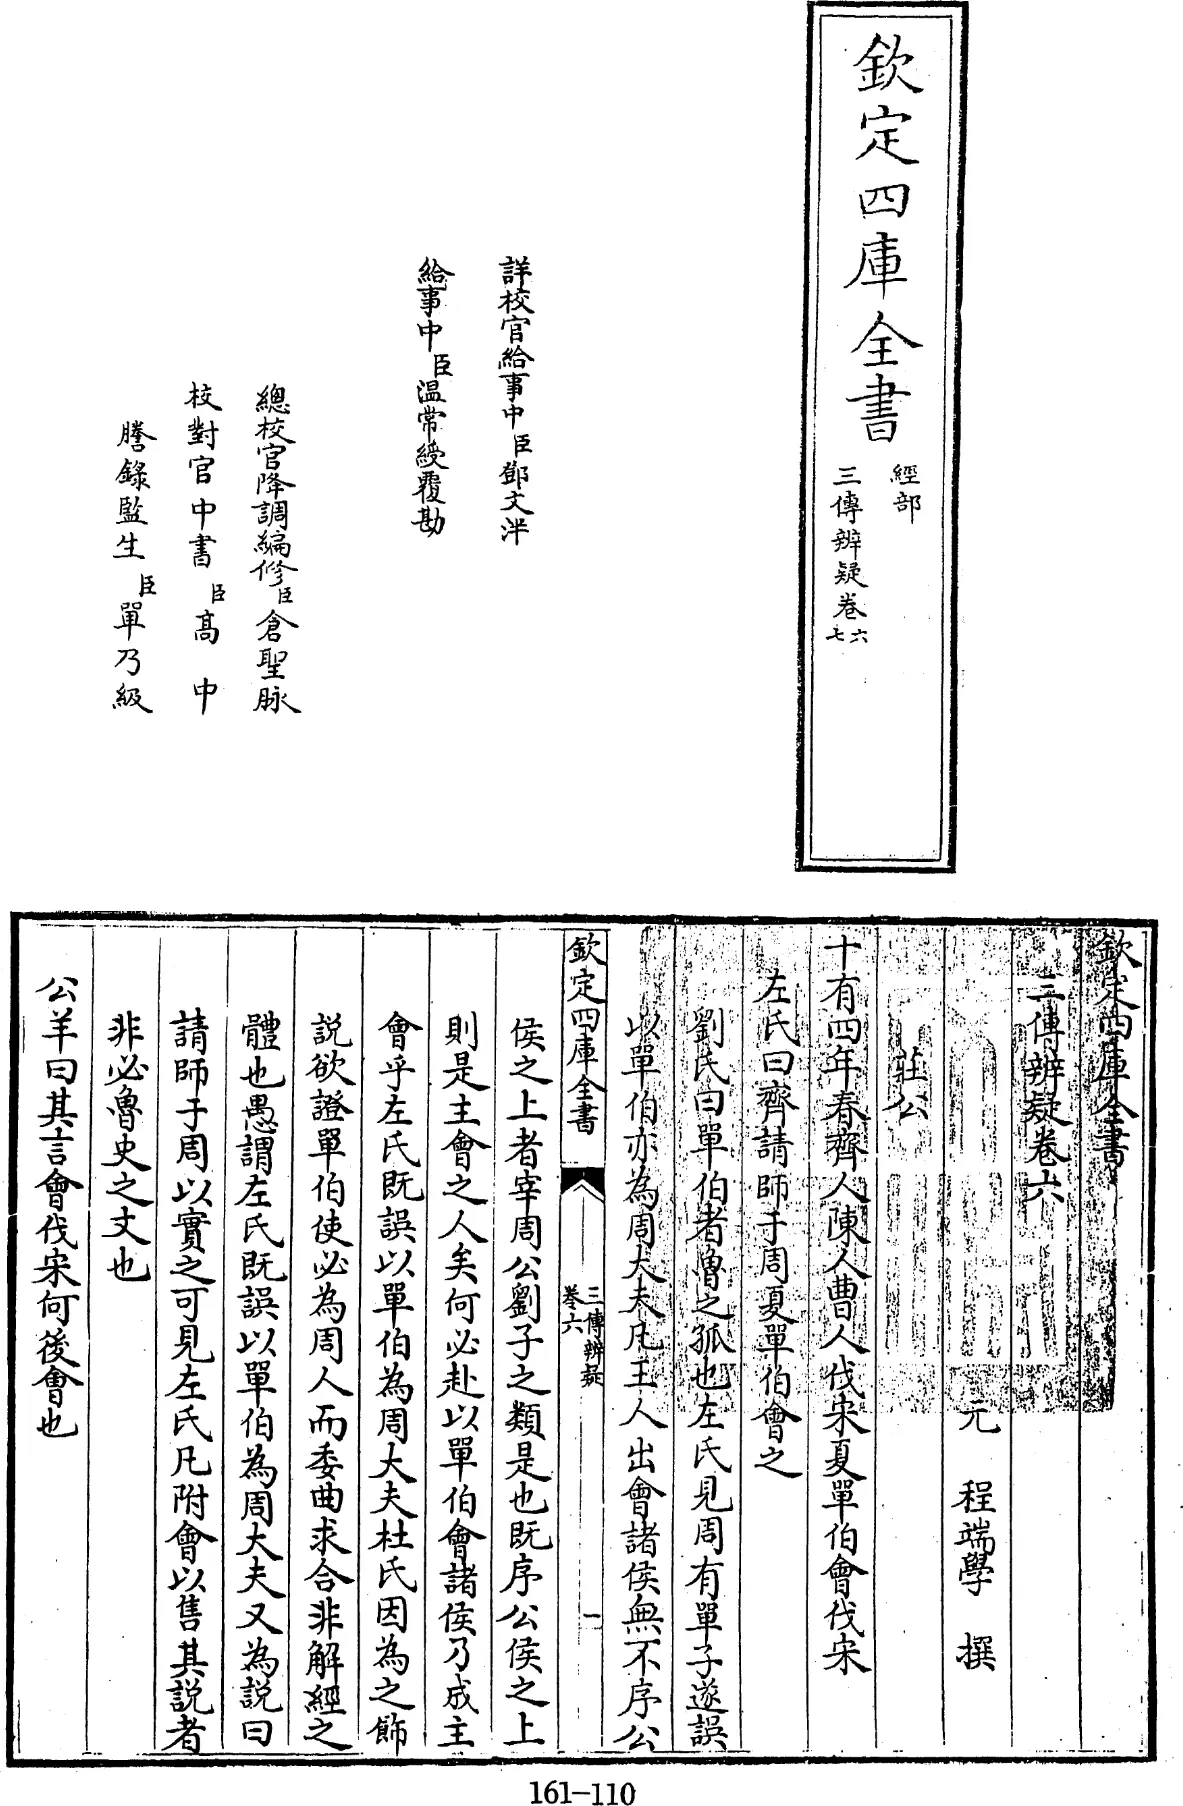 欽定四庫全書
經部
三傳辨疑卷六
七
詳校官給事中臣鄧文泮
給事中臣温常綬覆勘
總校官降調編修臣倉聖脉
校對官中書臣高中
謄錄監生臣單乃級
欽定四庫全書
三傳辨疑卷六
元 程端學 撰
莊公
十有四年春齊人陳人曹人伐宋夏單伯會伐宋
左氏曰齊請師于周夏單伯會之
劉氏曰單伯者魯之孤也左氏見周有單子遂誤
以單伯亦為周大夫凡王人出會諸侯無不序公
欽定四庫全書
三傳辨疑
卷六
一
侯之上者宰周公劉子之類是也既序公侯之上
則是主會之人矣何必赴以單伯會諸侯乃成主
會乎左氏既誤以單伯為周大夫杜氏因為之飾
說欲證單伯使必為周人而委曲求合非解經之
體也愚謂左氏既誤以單伯為周大夫又為說曰
請師于周以實之可見左氏凡附會以售其説者
非必魯史之文也
公羊曰其言會伐宋何後會也
161-110